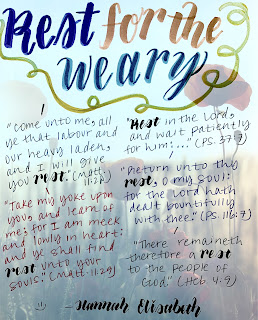 Rest for the
weary
"Come unto me, all
ye that labour and
our heavy laden,
and I will give
you rest." (Matt.
11:28)
"Take my yoke upon
you, and learn of
me; for I am meek
and lowly in heart:
and ye shall find
rest unto your
souls." (Matt. 11:29)
"Rest in the Lord,
and wait patiently
for him:..." (PS. 37:7)
"Return unto thy
rest, O my soul:
for the Lord hath
dealt bountifully
with thee." (PS. 116:7)
"There remaineth
therefore a rest
to the people of
God." (Heb. 4:9)
:) —Hannah Elisabeth